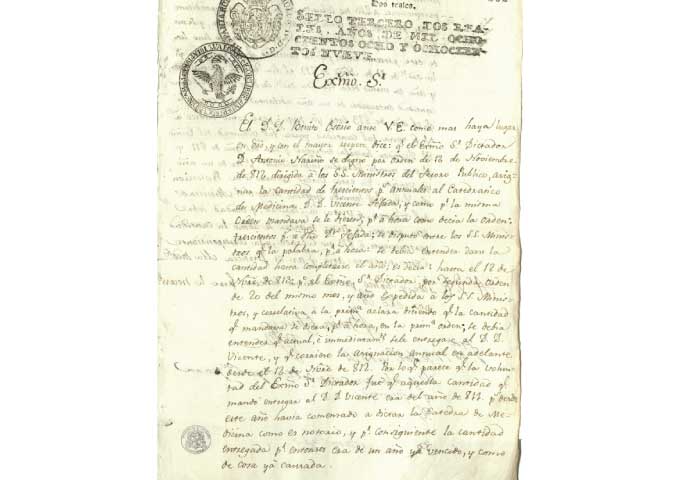 Dos reales.
SELLO TERCERO, DOS REA-
LES, AÑOS DE MIL OCHO-
CIENTOS OCHO Y OCHOCIEN-
TOS NUEVE.
Exmo. Sr.
El D. D. Benito Osorio ante V.E. como mas haya lugar
en dro, y con el mayor respeto dice: q.e el Exmo Sr. Dictador
D. Antonio Nariño se dignó por orden de 12 de Noviembre
de 812, dirigida à los SS. Ministros del Tesoro Publico, asig-
nar la cantidad de trescientos p.s annuales al Catedratico
de Medicina D. D. Vicente y como p.r la misma
Orden mandava se le diesen, p.r a hora como decia la orden:
trescientos p.s a dho Dr. se disputó entre los SS. Minis-
tros q.e la palabra, p.r a hora: se debia entender dar la
cantidad hasta completarse el año, es decir: hasta el 12 de
de 812; p.o el Exmo, Sr. Dictador, por segunda orden
de 20 del mismo mes, y año expedida à los SS. Minis-
tros, y correlativa à la prim.a aclara diciendo q.e la cantidad
q.e mandava se diera, p.r a hora, en la prim.a orden; se debia
entender q.e actual, è inmediatam.te se le entregase al D. D.
Vicente, y q.e corriese la asignacion annual en adelante
desde el 12 de de 812. Por lo q.e parece q.e la volun-
tad del Exmo Sr. Dictador fue q.e aquella cantidad q.e
mando entregar al D. D. Vicente era del año de 811. p.s desde
este año havia comenzado à dictar la Catedra de Me-
dicina como es notorio, y p.r consiguiente la cantidad
entregada p.r entonces era de un año yà vencido, y como
de cosa yà causada.